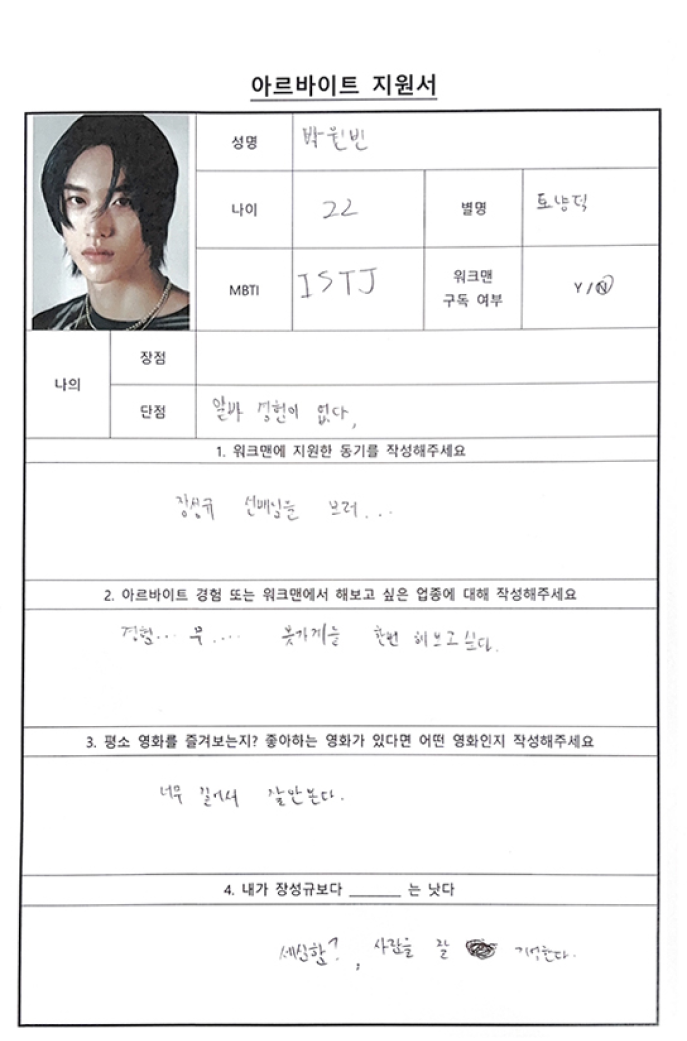 아르바이트 지원서
성명 박원빈
나이 22 별명 토냥덕
MBTI ISTJ 워크맨 구독 여부 Y/N
나의
장점
단점 알바 경험이 없다,
1. 워크맨에 지원한 동기를 작성해주세요
장성규 선배님을 보러...
2. 아르바이트 경험 또는 워크맨에서 해보고 싶은 업종에 대해 작성해주세요
경험... 무.... 옷가게를 한번 해보고싶다.
3. 평소 영화를 즐겨보는지? 좋아하는 영화가 있다면 어떤 영화인지 작성해주세요
너무 길어서 잘안본다.
4. 내가 장성규보다 ______ 는 낫다
세심함?, 사람을 잘 기억한다.